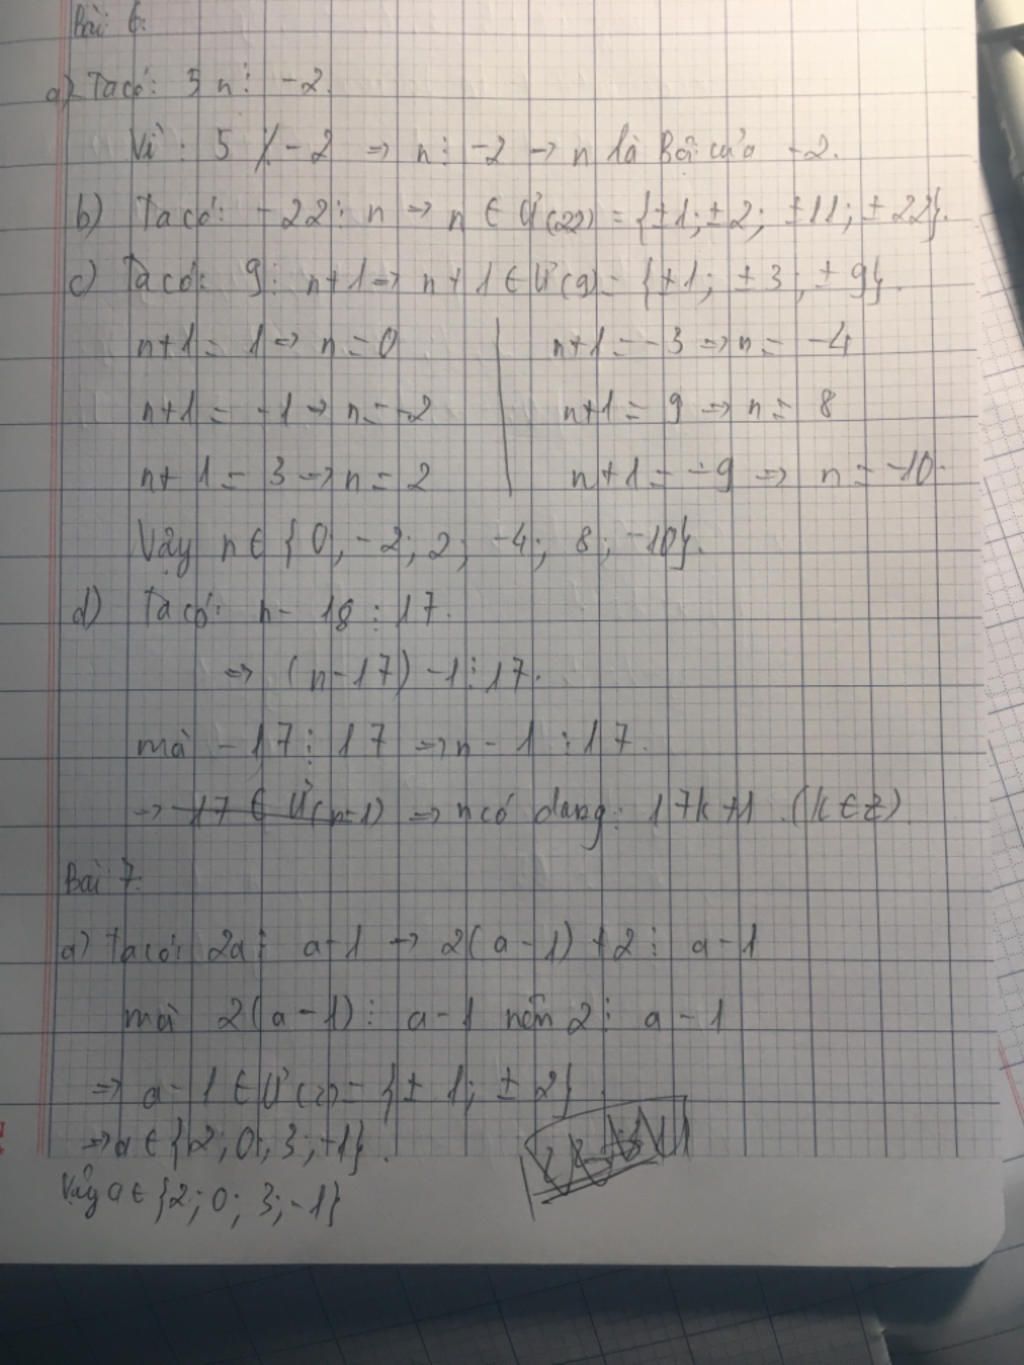 Bài 6:
a) Ta có: 5 n ⋮ -2.
Vì: 5 ⋮̸ -2 ⇒ n ⋮ -2 → n là Bội của -2.
b) Ta có: -22 ⋮ n → n ∈ Ư(22) = {±1; ±2; ±11; ±22}.
c) Ta có: 9 ⋮ n+1 → n + 1 ∈ Ư(9) = {±1; ±3; ±9}.
n+1 = 1 → n = 0 | n+1 = -3 → n = -4
n+1 = -1 → n = -2 | n+1 = 9 → n = 8
n+1 = 3 → n = 2 | n+1 = -9 ⇒ n = -10.
Vậy n ∈ {0; -2; 2; -4; 8; -10}.
d) Ta có: n - 18 ⋮ 17.
⇒ (n-17) -1 ⋮ 17.
mà -17 ⋮ 17 ⇒ n - 1 ⋮ 17.
→ 17 ∈ Ư(n-1) ⇒ n có dạng: 17k+1 (k ∈ Z).
Bài 7:
a) Ta có: 2a ⋮ a-1 → 2(a-1) +2 ⋮ a-1
mà 2(a-1) ⋮ a-1 nên 2 ⋮ a-1
⇒ a-1 ∈ Ư(2) = {±1; ±2}.
⇒ a ∈ {2; 0; 3; -1}.
Vậy a ∈ {2; 0; 3; -1}